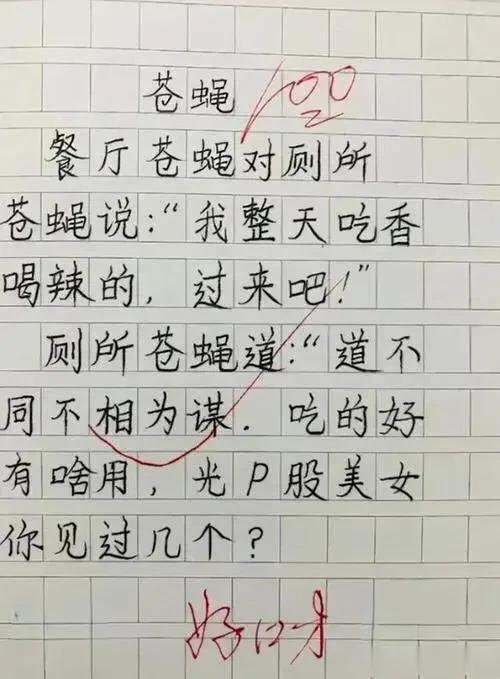 苍蝇 100
餐厅苍蝇对厕所
苍蝇说:“我整天吃香
喝辣的, 过来吧!”
厕所苍蝇道:“道不
同不相为谋. 吃的好
有啥用, 光P股美女
你见过几个?
好口才